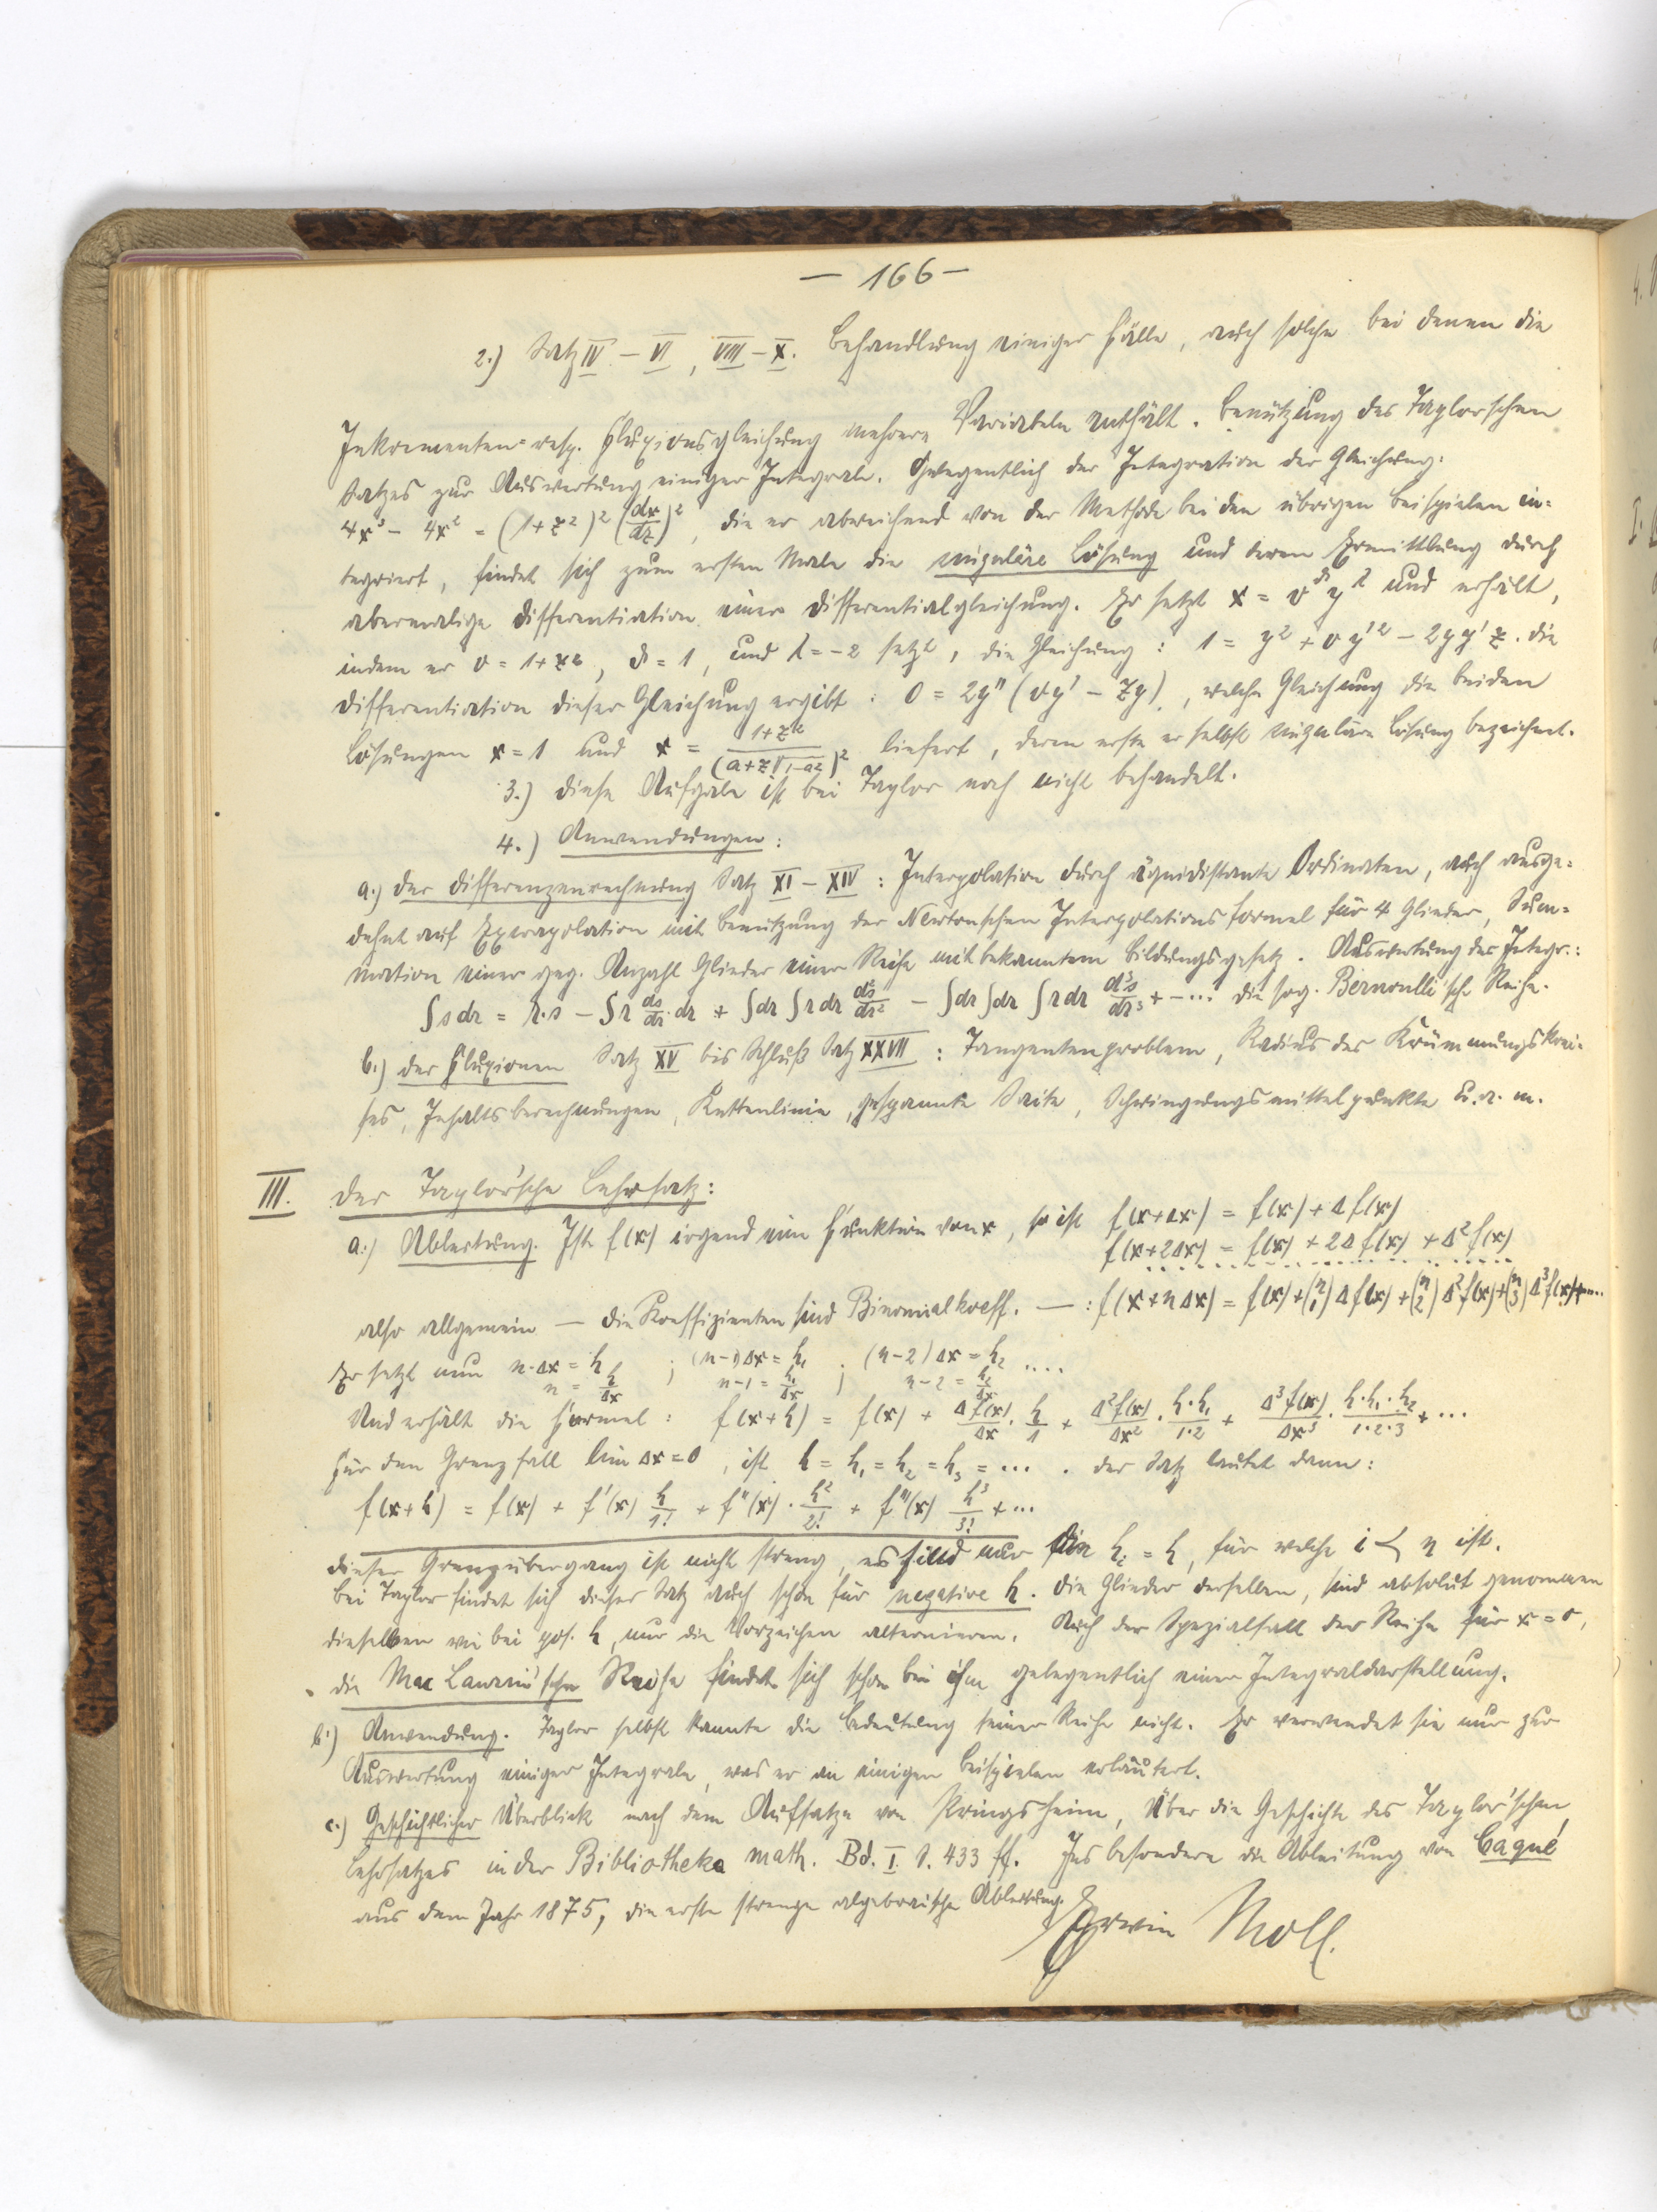 — 166 —
2.) Satz IV – VI, VIII – X. Behandlung einiger Fälle, auch solche bei denen die
Inkrementen- resp. Fluxionsgleichung mehrere Variabeln enthält. Benützung des Taylorschen
Satzes zur Auswertung einiger Integrale. Gelegentlich der Integration der Gleichung:
4x³ – 4x² = (1+z²)² (dx/dz)², die er abweichend von der Methode bei den übrigen Beispielen in=
tegriert, findet sich zum ersten Male die singuläre Lösung und deren Ermittlung durch
abermalige Differentiation einer Differentialgleichung. Er setzt x = v^ϑ y^λ und erhält,
indem er v = 1+z², ϑ = 1, und λ = –2 setzt, die Gleichung: 1 = y² + v y'² – 2yy'z. Die
Differentiation dieser Gleichung ergibt: 0 = 2y'' (vy' – zy), welche Gleichung die beiden
Lösungen x = 1 und x = (1+z²)/(a+z√(1–a²))² liefert, deren erste er selbst singuläre Lösung bezeichnet.
3.) Diese Aufgabe ist bei Taylor noch nicht behandelt.
4.) Anwendungen:
a.) der Differenzenrechnung Satz XI – XIV: Interpolation durch äquidistante Ordinaten, auch ausge=
dehnt auf Extrapolation mit Benutzung der Newtonschen Interpolationsformel für 4 Glieder, Sum=
mation einer geg. Anzahl Glieder einer Reihe mit bekanntem Bildungsgesetz. Auswertung des Integr.:
∫s dr = r·s – ∫r ds/dr dr + ∫dr ∫r dr d²s/dr² – ∫dr ∫dr ∫r dr d³s/dr³ + – ... die sog. Bernoulli'sche Reihe.
b.) der Fluxionen Satz XV bis Schluß Satz XXVII: Tangentenproblem, Radius des Krümmungskrei=
ses, Inhaltsberechnungen, Kettenlinie, gespannte Saite, Schwingungsmittelpunkte u. a. m.
III. Der Taylor'sche Lehrsatz:
a.) Ableitung. Ist f(x) irgend eine Funktion von x, so ist f(x+Δx) = f(x) + Δf(x)
f(x+2Δx) = f(x) + 2Δf(x) + Δ²f(x)
also allgemein — die Koeffizienten sind Binomialkoeff. —: f(x+nΔx) = f(x) + (n/1) Δf(x) + (n/2) Δ²f(x) + (n/3) Δ³f(x) + ....
Er setzt nun n·Δx = h ; (n–1)Δx = h₁ ; (n–2)Δx = h₂ ....
n = h/Δx ; n–1 = h₁/Δx ; n–2 = h₂/Δx
Und erhält die Formel: f(x+h) = f(x) + Δf(x)/Δx · h/1 + Δ²f(x)/Δx² · h·h₁/1·2 + Δ³f(x)/Δx³ · h·h₁·h₂/1·2·3 + ...
Für den Grenzfall lim Δx = 0, ist h = h₁ = h₂ = h₃ = .... Der Satz lautet dann:
f(x+h) = f(x) + f'(x) h/1! + f''(x) · h²/2! + f'''(x) h³/3! + ...
Dieser Grenzübergang ist nicht streng, es sind nur die hᵢ = h, für welche i < n ist.
Bei Taylor findet sich dieser Satz auch schon für negative h. Die Glieder derselben, sind absolut genommen
dieselben wie bei pos. h, nur die Vorzeichen alternieren. Auch der Spezialfall der Reihe für x = 0,
die Mac Laurin'sche Reihe findet sich schon bei ihm gelegentlich einer Integraldarstellung.
b.) Anwendung. Taylor selbst kannte die Bedeutung seiner Reihe nicht. Er verwendet sie nur zur
Auswertung einiger Integrale, was er an einigen Beispielen erläutert.
c.) Geschichtlicher Überblick nach dem Aufsatze von Pringsheim, Über die Geschichte des Taylor'schen
Lehrsatzes in der Bibliotheka math. Bd. I. S. 433 ff. Insbesondere die Ableitung von Caqué
aus dem Jahr 1875, die erste strenge algebraische Ableitung.
Erwin Moll.